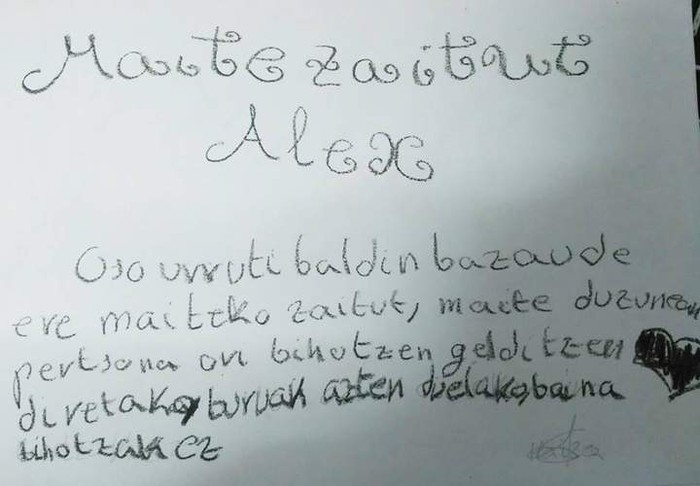 Maite zaitut
Alex
Oso urruti baldin bazaude
ere maitko zaitut, maite duzunean
pertsona ori bihotzen gelditzen
diretako, buruak azten duelako, baina
bihotzak ez